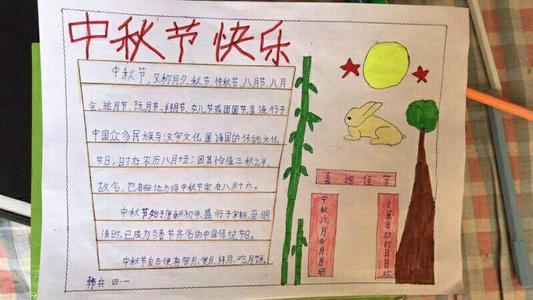 中秋节快乐
中秋节,又称月夕、秋节、仲秋节、八月节、八月
会、追月节、玩月节、拜月节、女儿节或团圆节,是流行于
中国众多民族与汉字文化圈诸国的传统文化
节日,时在农历八月十五;因其恰值三秋之半,
故名,也有些地方将中秋节定在八月十六。
中秋节始于唐朝初年,盛行于宋朝,至明
清时,已成为与春节齐名的中国传统节日。
中秋节自古便有祭月、赏月、拜月、吃月饼、
韩 四·一
喜迎佳节
中秋八月中月日明